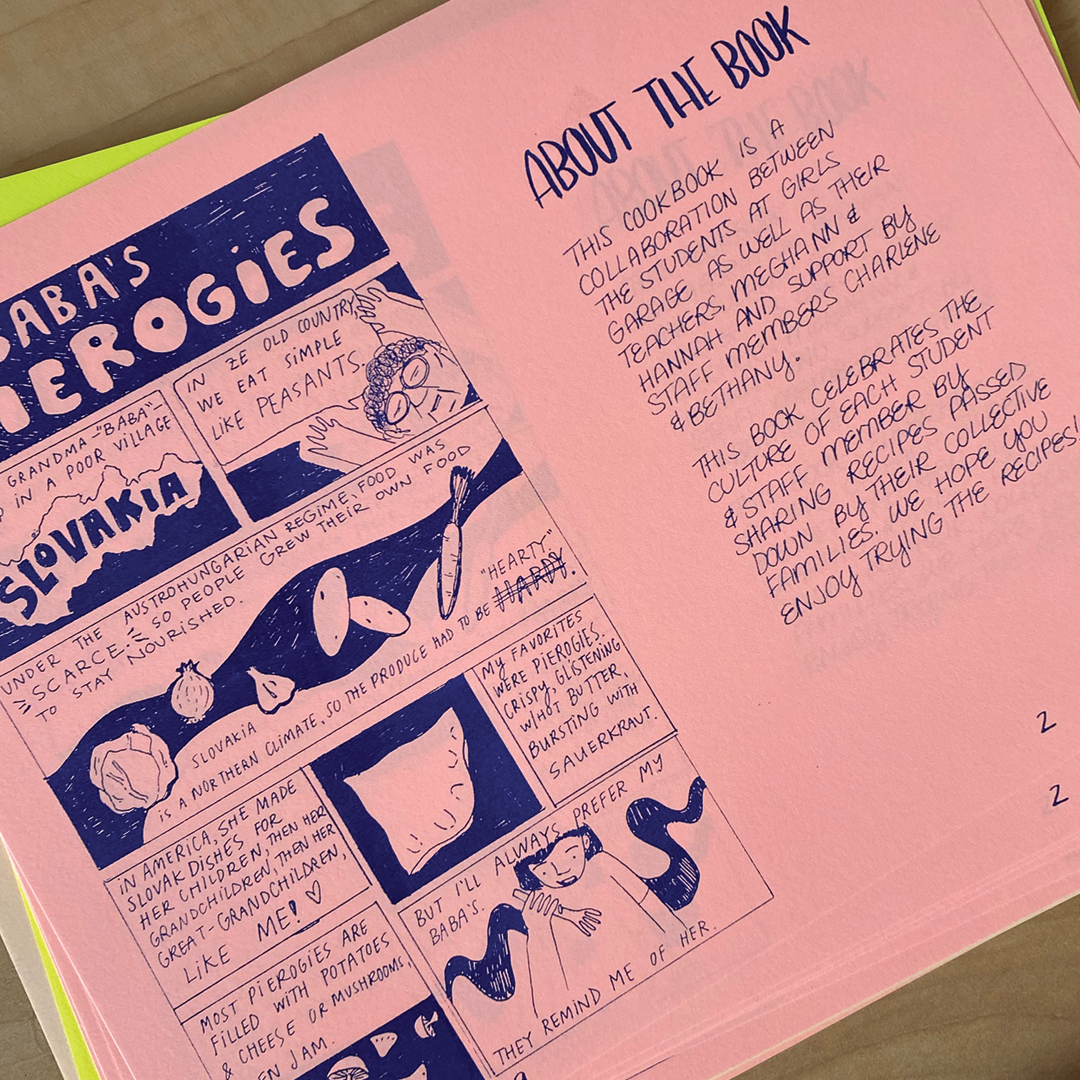 BABA'S
PIEROGIES
GRANDMA-"BABA"-
UP IN A POOR VILLAGE
SLOVAKIA
IN ZE OLD COUNTRY,
WE EAT SIMPLE
LIKE PEASANTS.
UNDER THE AUSTROHUNGARIAN REGIME, FOOD WAS
SCARCE. SO PEOPLE GREW THEIR OWN FOOD
TO STAY NOURISHED.
SLOVAKIA
IS A NORTHERN CLIMATE, SO THE PRODUCE HAD TO BE HARDY.
"HEARTY"
IN AMERICA, SHE MADE
SLOVAK DISHES FOR
HER CHILDREN, THEN HER
GRANDCHILDREN, THEN HER
GREAT-GRANDCHILDREN,
LIKE ME! ♡
MY FAVORITES
WERE PIEROGIES.
CRISPY, GLISTENING
W/HOT BUTTER,
BURSTING WITH
SAUERKRAUT.
MOST PIEROGIES ARE
FILLED WITH POTATOES
& CHEESE OR MUSHROOMS,
EN JAM.
BUT I'LL ALWAYS PREFER MY
BABA'S.
THEY REMIND ME OF HER.
ABOUT THE BOOK
THIS COOKBOOK IS A
COLLABORATION BETWEEN
THE STUDENTS AT GIRLS
GARAGE AS WELL AS THEIR
TEACHERS, MEGHANN &
HANNAH AND SUPPORT BY
STAFF MEMBERS CHARLENE
& BETHANY.
THIS BOOK CELEBRATES THE
CULTURE OF EACH STUDENT
& STAFF MEMBER BY
SHARING RECIPES PASSED
DOWN BY THEIR COLLECTIVE
FAMILIES. WE HOPE YOU
ENJOY TRYING THE RECIPES!
2
2